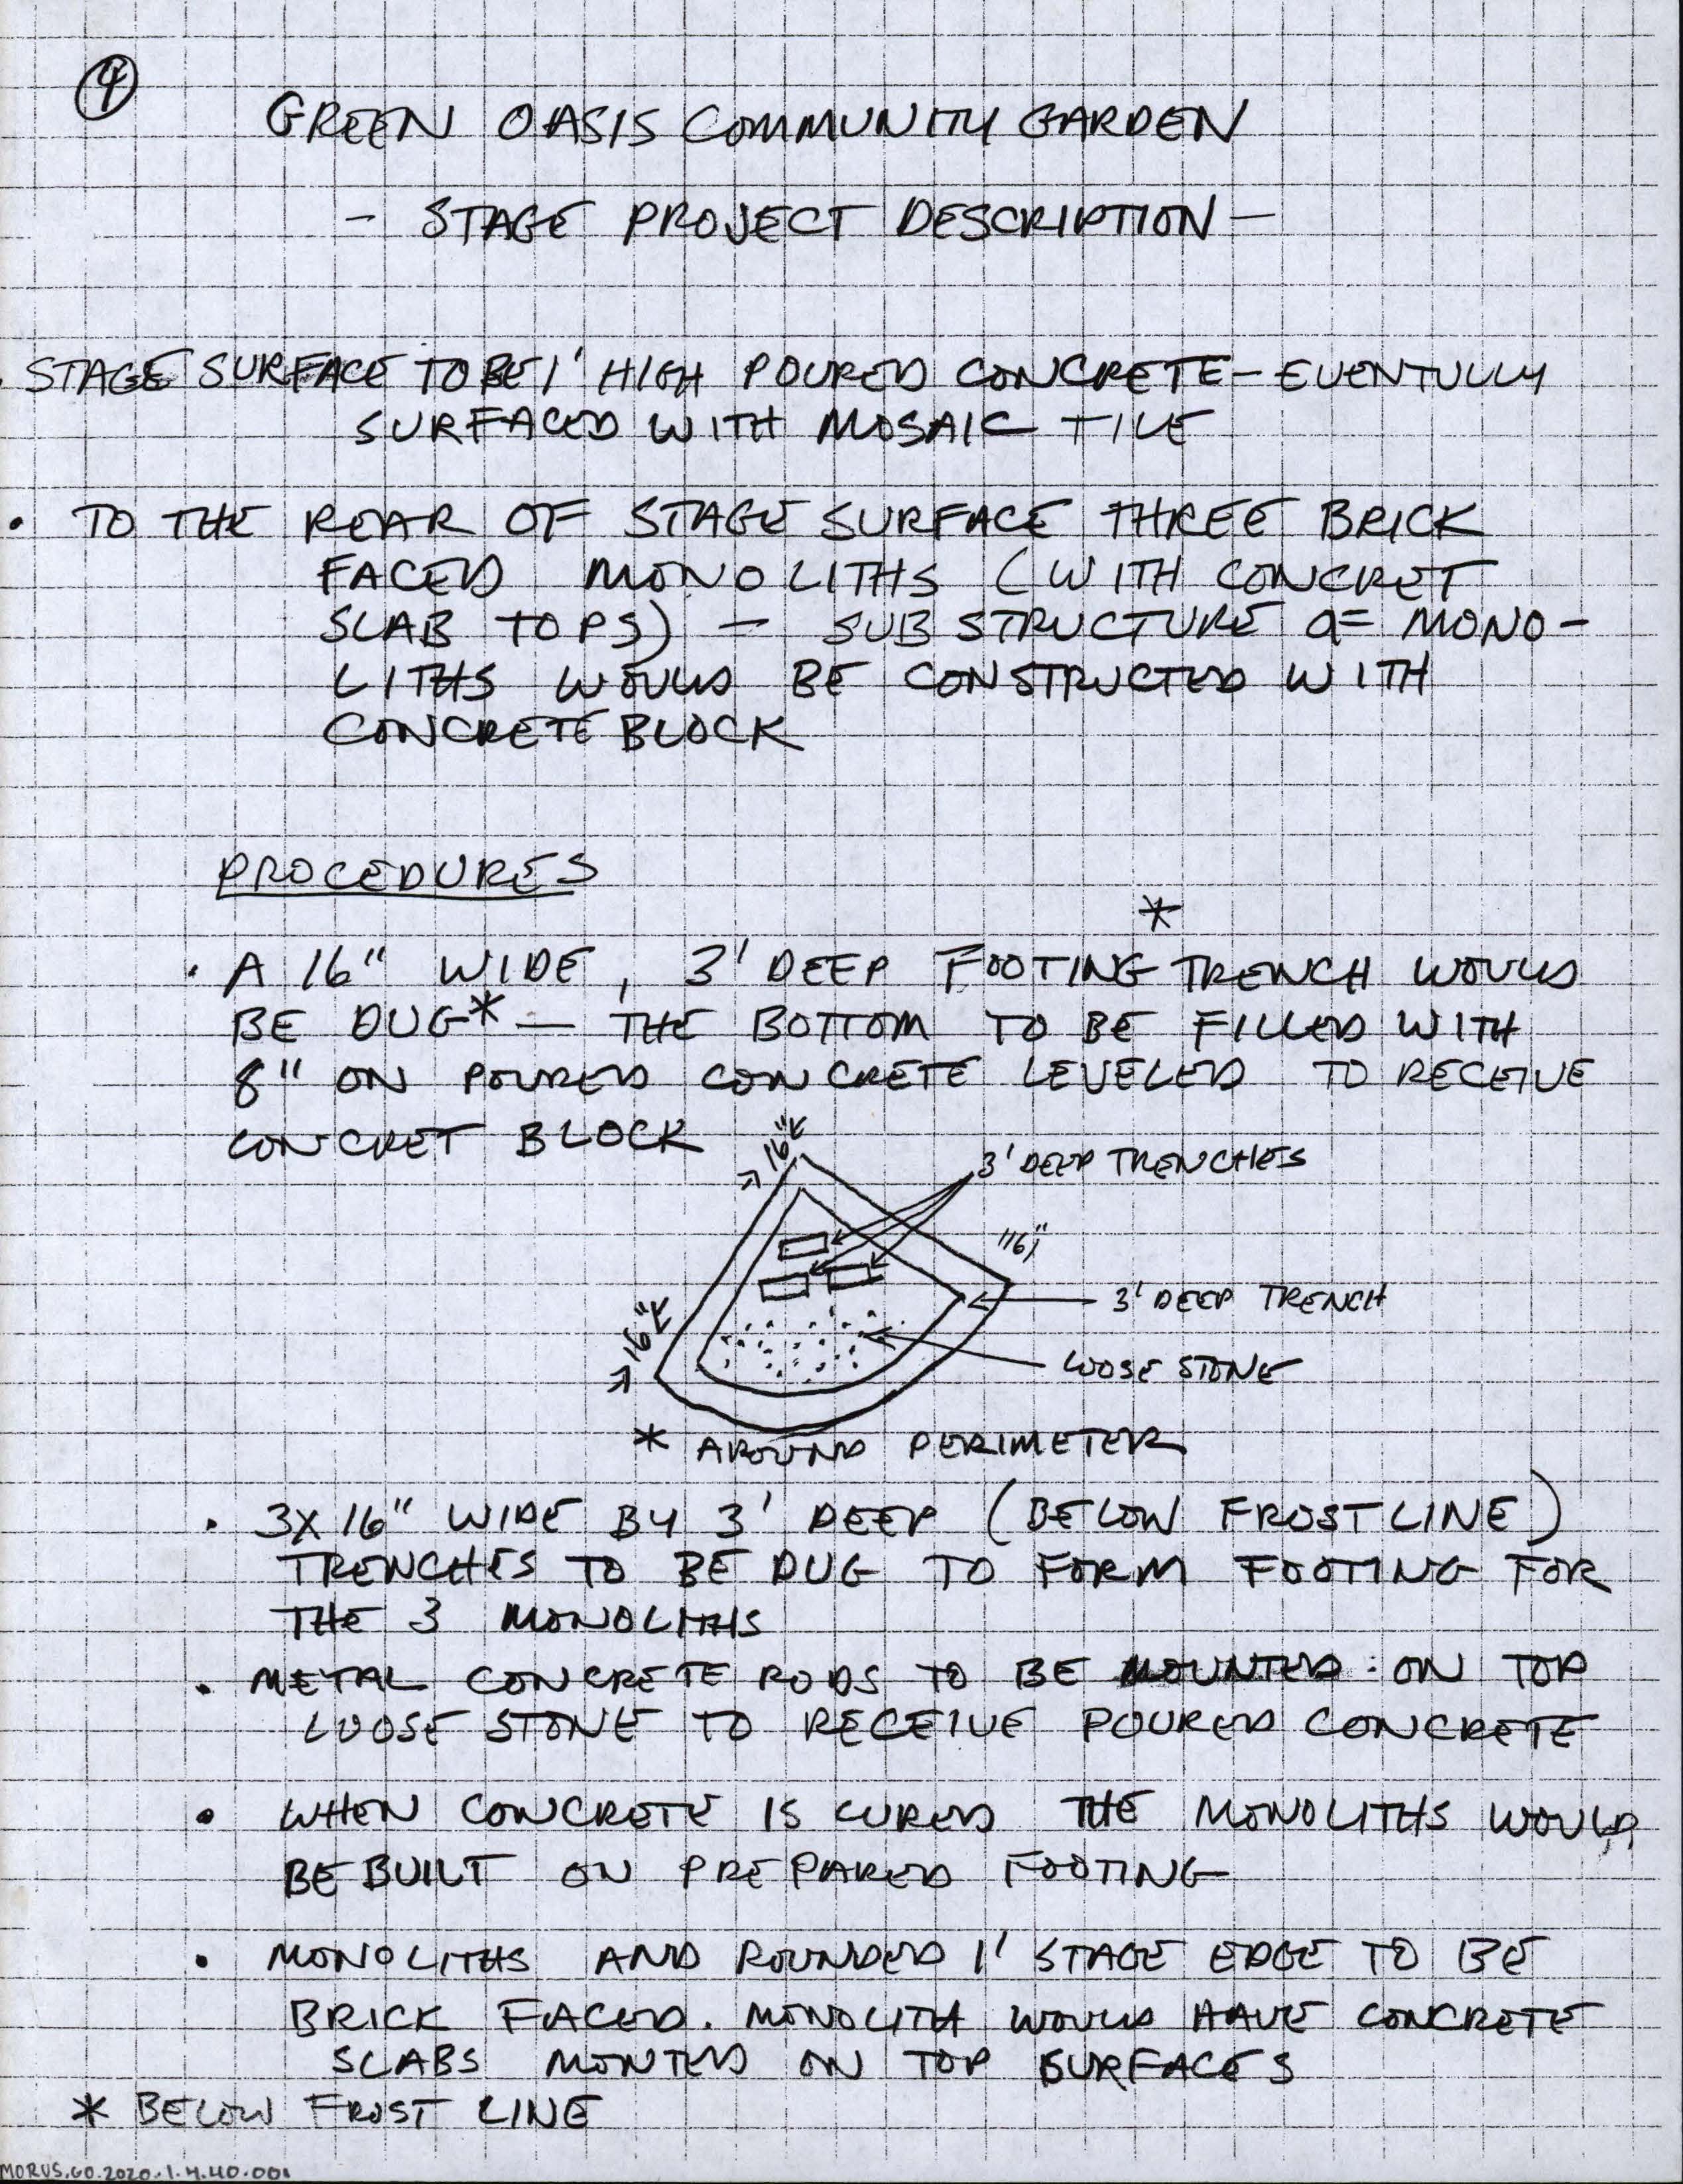 4
GREEN OASIS COMMUNITY GARDEN
- STAGE PROJECT DESCRIPTION -
. STAGE SURFACE TO BE 1' HIGH POURED CONCRETE - EVENTULLY
SURFACED WITH MOSAIC TILE
• TO THE REAR OF STAGE SURFACE THREE BRICK
FACED MONOLITHS (WITH CONCRET
SLAB TOPS) - SUB STRUCTURE OF MONO-
LITHS WOULD BE CONSTRUCTED WITH
CONCRETE BLOCK
PROCEDURES
*
• A 16" WIDE, 3' DEEP FOOTING TRENCH WOULD
BE DUG* - THE BOTTOM TO BE FILLED WITH
8" ON POURED CONCRETE LEVELED TO RECEIVE
CONCRET BLOCK
16"
3' DEEP TRENCHES
16"
3' DEEP TRENCH
16"
LOOSE STONE
* AROUND PERIMETER
• 3X16" WIDE BY 3' DEEP (BELOW FROST LINE)
TRENCHES TO BE DUG TO FORM FOOTING FOR
THE 3 MONOLITHS
• METAL CONCRETE RODS TO BE MOUNTED ON TOP
LOOSE STONE TO RECEIVE POURED CONCRETE
• WHEN CONCRETE IS CURED THE MONOLITHS WOULD
BE BUILT ON PREPARED FOOTING
• MONOLITHS AND ROUNDED 1' STAGE EDGE TO BE
BRICK FACED. MONOLITH WOULD HAVE CONCRETE
SLABS MONTED ON TOP SURFACES
* BELOW FROST LINE
MORUS.GO.2020.1.4.40.001